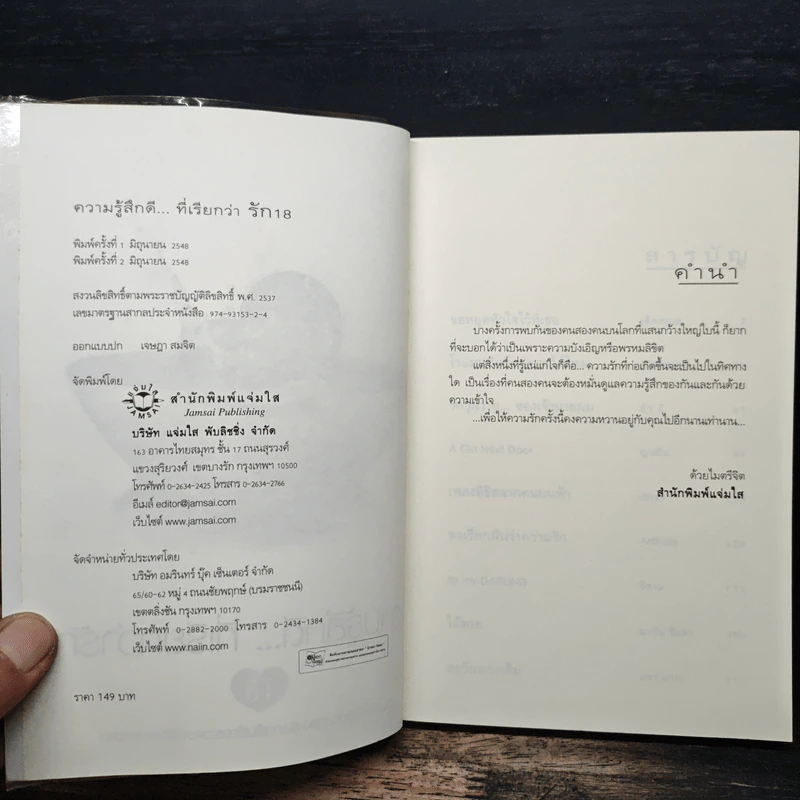 ความรู้สึกดี... ที่เรียกว่า รัก18
พิมพ์ครั้งที่ 1 มิถุนายน 2548
พิมพ์ครั้งที่ 2 มิถุนายน 2548
สงวนลิขสิทธิ์ตามพระราชบัญญัติลิขสิทธิ์ พ.ศ. 2537
เลขมาตรฐานสากลประจำหนังสือ 974-93153-2-4
ออกแบบปก เจษฎา สมจิต
จัดพิมพ์โดย
แจ่มใส
JAMSAI
สำนักพิมพ์แจ่มใส
Jamsai Publishing
บริษัท แจ่มใส พับลิชชิ่ง จำกัด
163 อาคารไทยสมุทร ชั้น 17 ถนนสุรวงศ์
แขวงสุริยวงศ์ เขตบางรัก กรุงเทพฯ 10500
โทรศัพท์ 0-2634-2425 โทรสาร 0-2634-2766
อีเมล์ editor@jamsai.com
เว็บไซต์ www.jamsai.com
จัดจำหน่ายทั่วประเทศโดย
บริษัท อมรินทร์ บุ๊ค เซ็นเตอร์ จำกัด
65/60-62 หมู่ 4 ถนนชัยพฤกษ์ (บรมราชชนนี)
เขตตลิ่งชัน กรุงเทพฯ 10170
โทรศัพท์ 0-2882-2000 โทรสาร 0-2434-1384
เว็บไซต์ www.naiin.com
ราคา 149 บาท
คำนำ
บางครั้งการพบกันของคนสองคนบนโลกที่แสนกว้างใหญ่ใบนี้ ก็ยาก
ที่จะบอกได้ว่าเป็นเพราะความบังเอิญหรือพรหมลิขิต
แต่สิ่งหนึ่งที่รู้แน่แก่ใจก็คือ... ความรักที่ก่อเกิดขึ้นจะเป็นไปในทิศทาง
ใด เป็นเรื่องที่คนสองคนจะต้องหมั่นดูแลความรู้สึกของกันและกันด้วย
ความเข้าใจ
...เพื่อให้ความรักครั้งนี้คงความหวานอยู่กับคุณไปอีกนานเท่านาน...
ด้วยไมตรีจิต
สำนักพิมพ์แจ่มใส